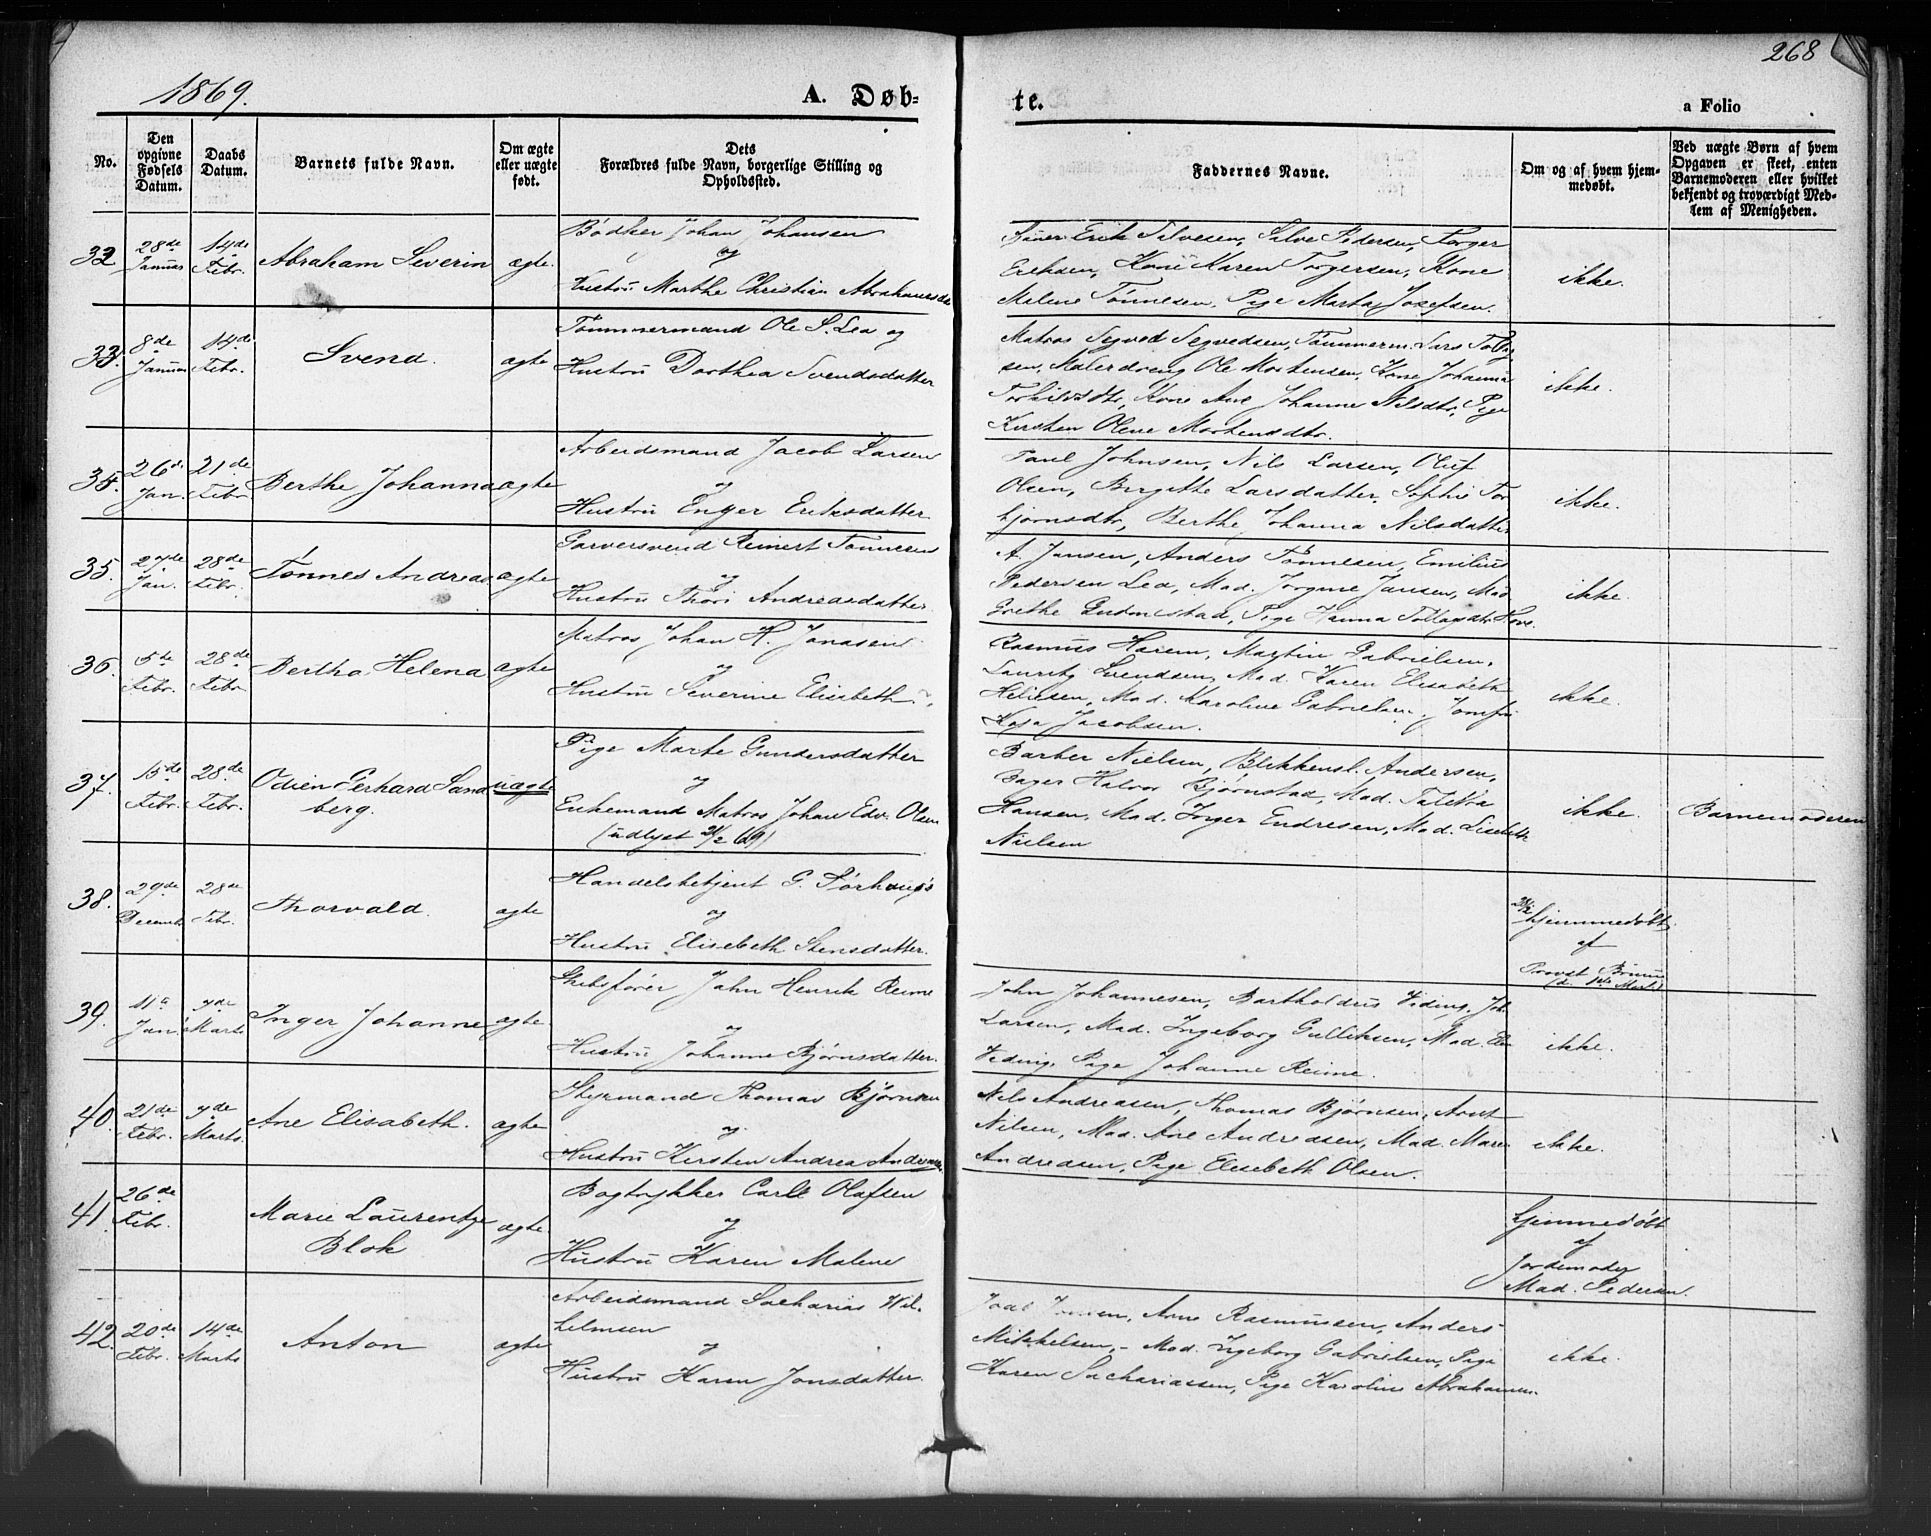 1869.
A. Døb=
te.
268
a Folio
No.
Den opgivne Fødsels Datum.
Daabs Datum.
Barnets fulde Navn.
Om ægte eller uægte født.
Dets Forældres fulde Navn, borgerlige Stilling og Opholdssted.
Faddernes Navne.
Om og af hvem hjem-
medøbt.
Ved uægte Børn af hvem
Opgaven er skeet, enten
Barnemoderen eller hvilket
bekjendt og troværdigt Med-
lem af Menigheden.
32
28de Januar
14de Febr.
Abraham Severin
ægte.
Bødker Johan Johansen
og
Hustru Marthe Christian Abrahamsdr
Erik Salvesen, Salve Pedersen, Torger
Eriksen, Kone Karen Torgersen, Kone
Malene Tønnesen, Pige Marta Josefsen.
ikke.
33.
8de Januar
14de Febr.
Svend.
ægte
Tømmermand Ole S. Lea og
Hustru Dorthea Svendsdatter
Matros Segvod Segvedsen, Tømmerm. Lars Tollag
sen, Malerdreng Ole Mortensen, Kone Johanna
Torkildsdtr, Kone Ane Johanne Nilsdtr, Pige
Kirsten Oline Mortensdtr.
ikke.
34.
26de Jan.
21de Febr
Berthe Johanna
ægte
Arbeidsmand Jacob Larsen
og
Hustru Enger Eriksdatter
Paul Johnsen, Nils Larsen, Oluf
Olsen, Birgitte Larsdatter, Sophie Tor
bjørnsdtr, Berthe Johanna Nilsdatter
ikke.
35.
27de Jan.
28de Febr.
Tønnes Andreas
ægte
Garversvend Reinert Tønnesen
og
Hustru Thori Andreasdatter
A. Jansen, Anders Tønnesen, Emilius
Pedersen Lea, Mad. Jørgine Jansen, Mad
Grethe Gudmestad, Pige Hanna Tollagsdtr
ikke.
36.
5te Febr.
28de Febr
Bertha Helena
ægte
Matros Johan H. Jonasen
og
Hustru Severine Elisabeth
Rasmus Harem, Martin Gabrielsen,
Lauritz Svendsen, Mad. Karen Elisabeth
Heliesen, Mad. Karoline Gabrielsen, Jomfru
Kaja Jacobsen.
ikke.
37.
15de Febr.
28de Febr.
Odien Gerhard Sand
berg.
uægte
Pige Marte Gundersdatter
og
Enkemand Matros Johan Edv. Olsen
(udlyst 21/2 69)
Barber Nielsen, Blikkensl. Andersen,
Bager Halvor Bjørnstad, Mad. Talekra
Hansen, Mad. Inger Endresen, Mad. Lisebeth
Nielsen
ikke.
Barnemoderen
38.
29de Decembr
28de Febr.
Thorvald.
ægte
Handelsbetjent G. Tørhaug's
og
Hustru Elisebeth Stensdatter.
hjemmedøbt
af
Provst Bruun
39.
11te Jan.
7de Marts
Inger Johanne
ægte
Skibsfører John Henrik Reime
og
Hustru Johanne Bjørnsdatter.
John Johannesen, Bartholdus Viding, Joh.
Larsen, Mad. Ingeborg Gulliksen, Mad.
Viding, Pige Johanne Reime.
ikke.
40.
21de Febr.
7de Marts
Ane Elisabeth.
ægte
Styrmand Thomas Bjørnsen
og
Hustru Kirsten Andrea Andreasen
Nils Andreasen, Thomas Bjørnsen, Arnt
Nilsen, Mad. Ane Andreasen, Mad. Maren
Andreasen, Pige Elisebeth Olsen.
ikke.
41.
26de Febr.
Marie Laurentze
Blok
ægte
Bogtrykker Carll Olafsen
og
Hustru Karen Malene
hjemmedøbt
af
Jordemoder
Mad. Pedersen.
42.
20de Febr.
14de Marts
Anton
ægte
Arbeidsmand Sacharias Wil-
helmsen
og
Hustru Karen Jonsdatter.
Arne Rasmussen, Anders
Mikkelsen, - Mad. Ingeborg Gabrielsen, Pige
Karen Sachariassen, Pige Karoline Abrahamsen
ikke.